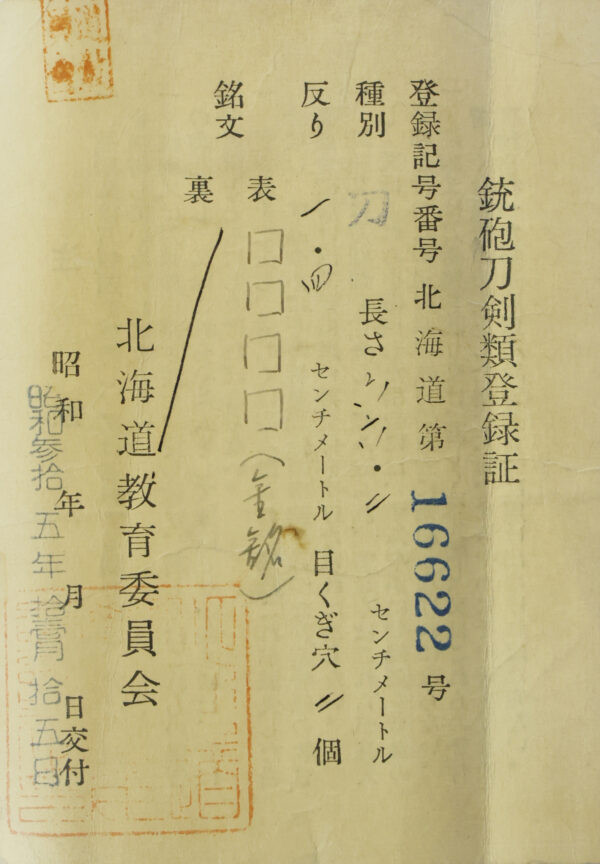 銃砲刀剣類登録証
登録記号番号 北海道第 16622 号
種別 刀 長さ センチメートル
反り 一・四 センチメートル 目くぎ穴 〃 個
銘文 表 □□□□(金銘)
裏
北海道教育委員会
昭和 年 月 日交付
昭和参拾五年 拾五日